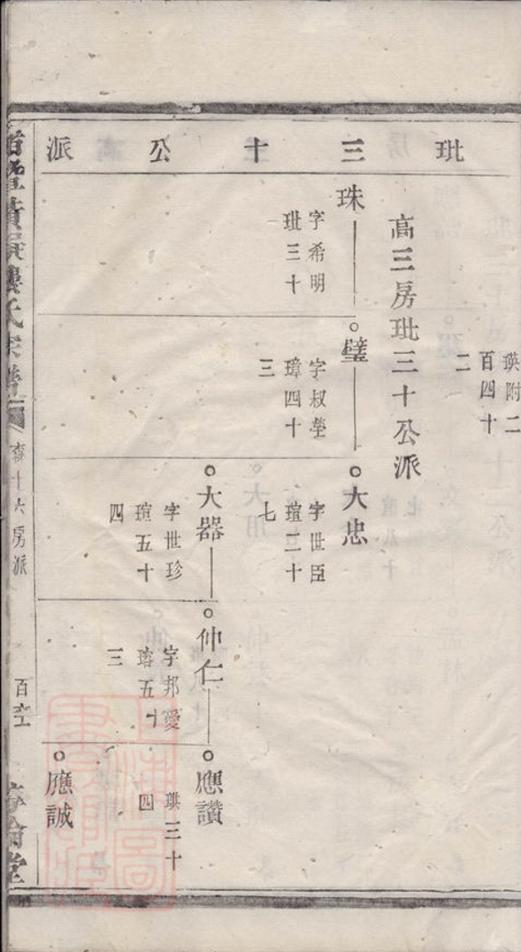 玭三十公派
瑛附二
百四十
二
高三房玭三十公派
珠
字希明
玭三十
璧
字叔瑩
璋四十
三
大忠
字世臣
瑄二十
七
大器
字世珍
瑄五十
四
仲仁
字邦愛
瑢五十
三
應讚
珙三十
四
應誠
森十六房派